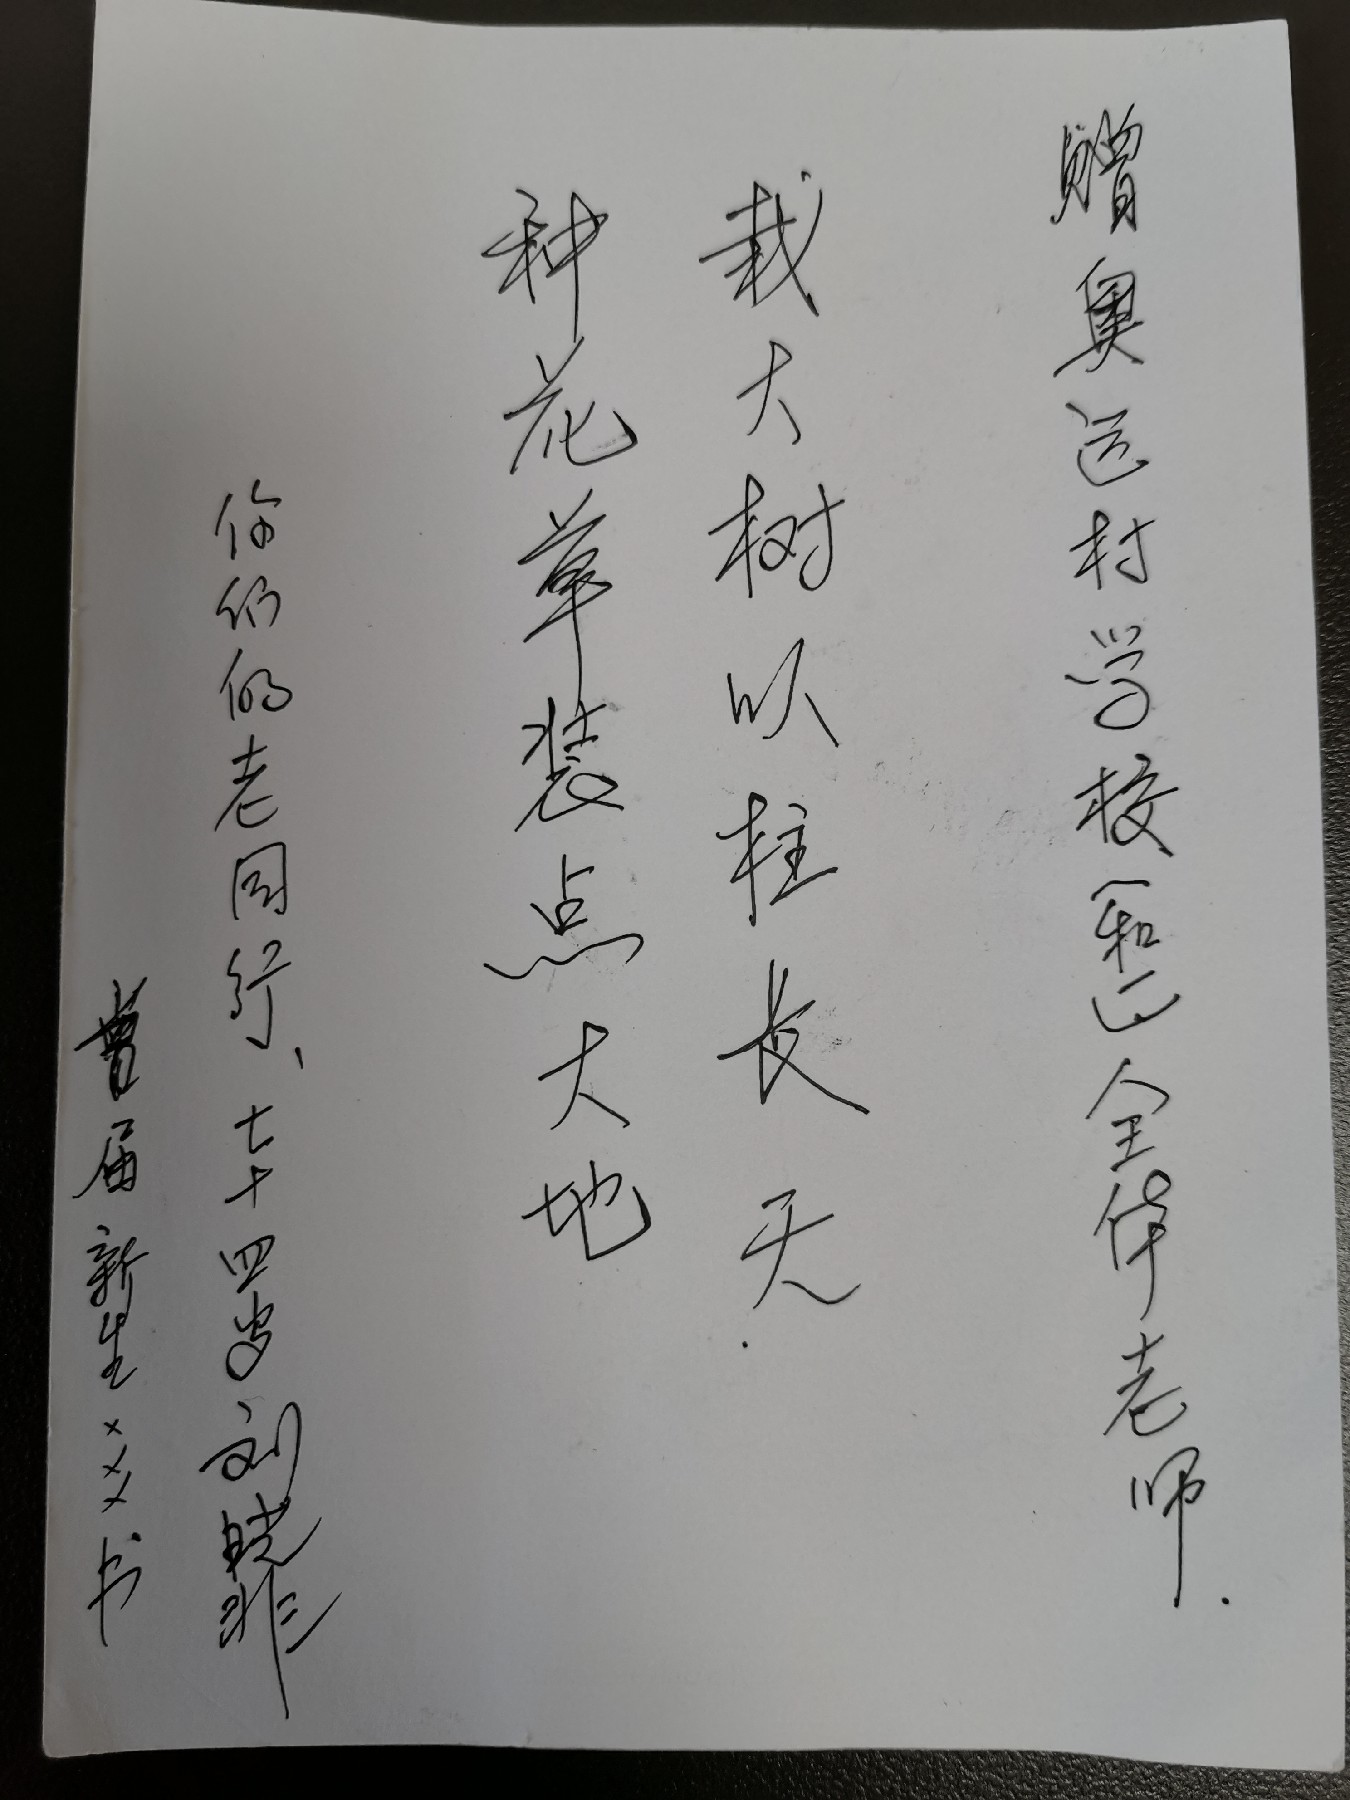 赠奥运村学校(和)全体老师.
栽大树以柱长天.
种花草装点大地
你们的老同行、七十四岁刘晓非
首届新生×××书